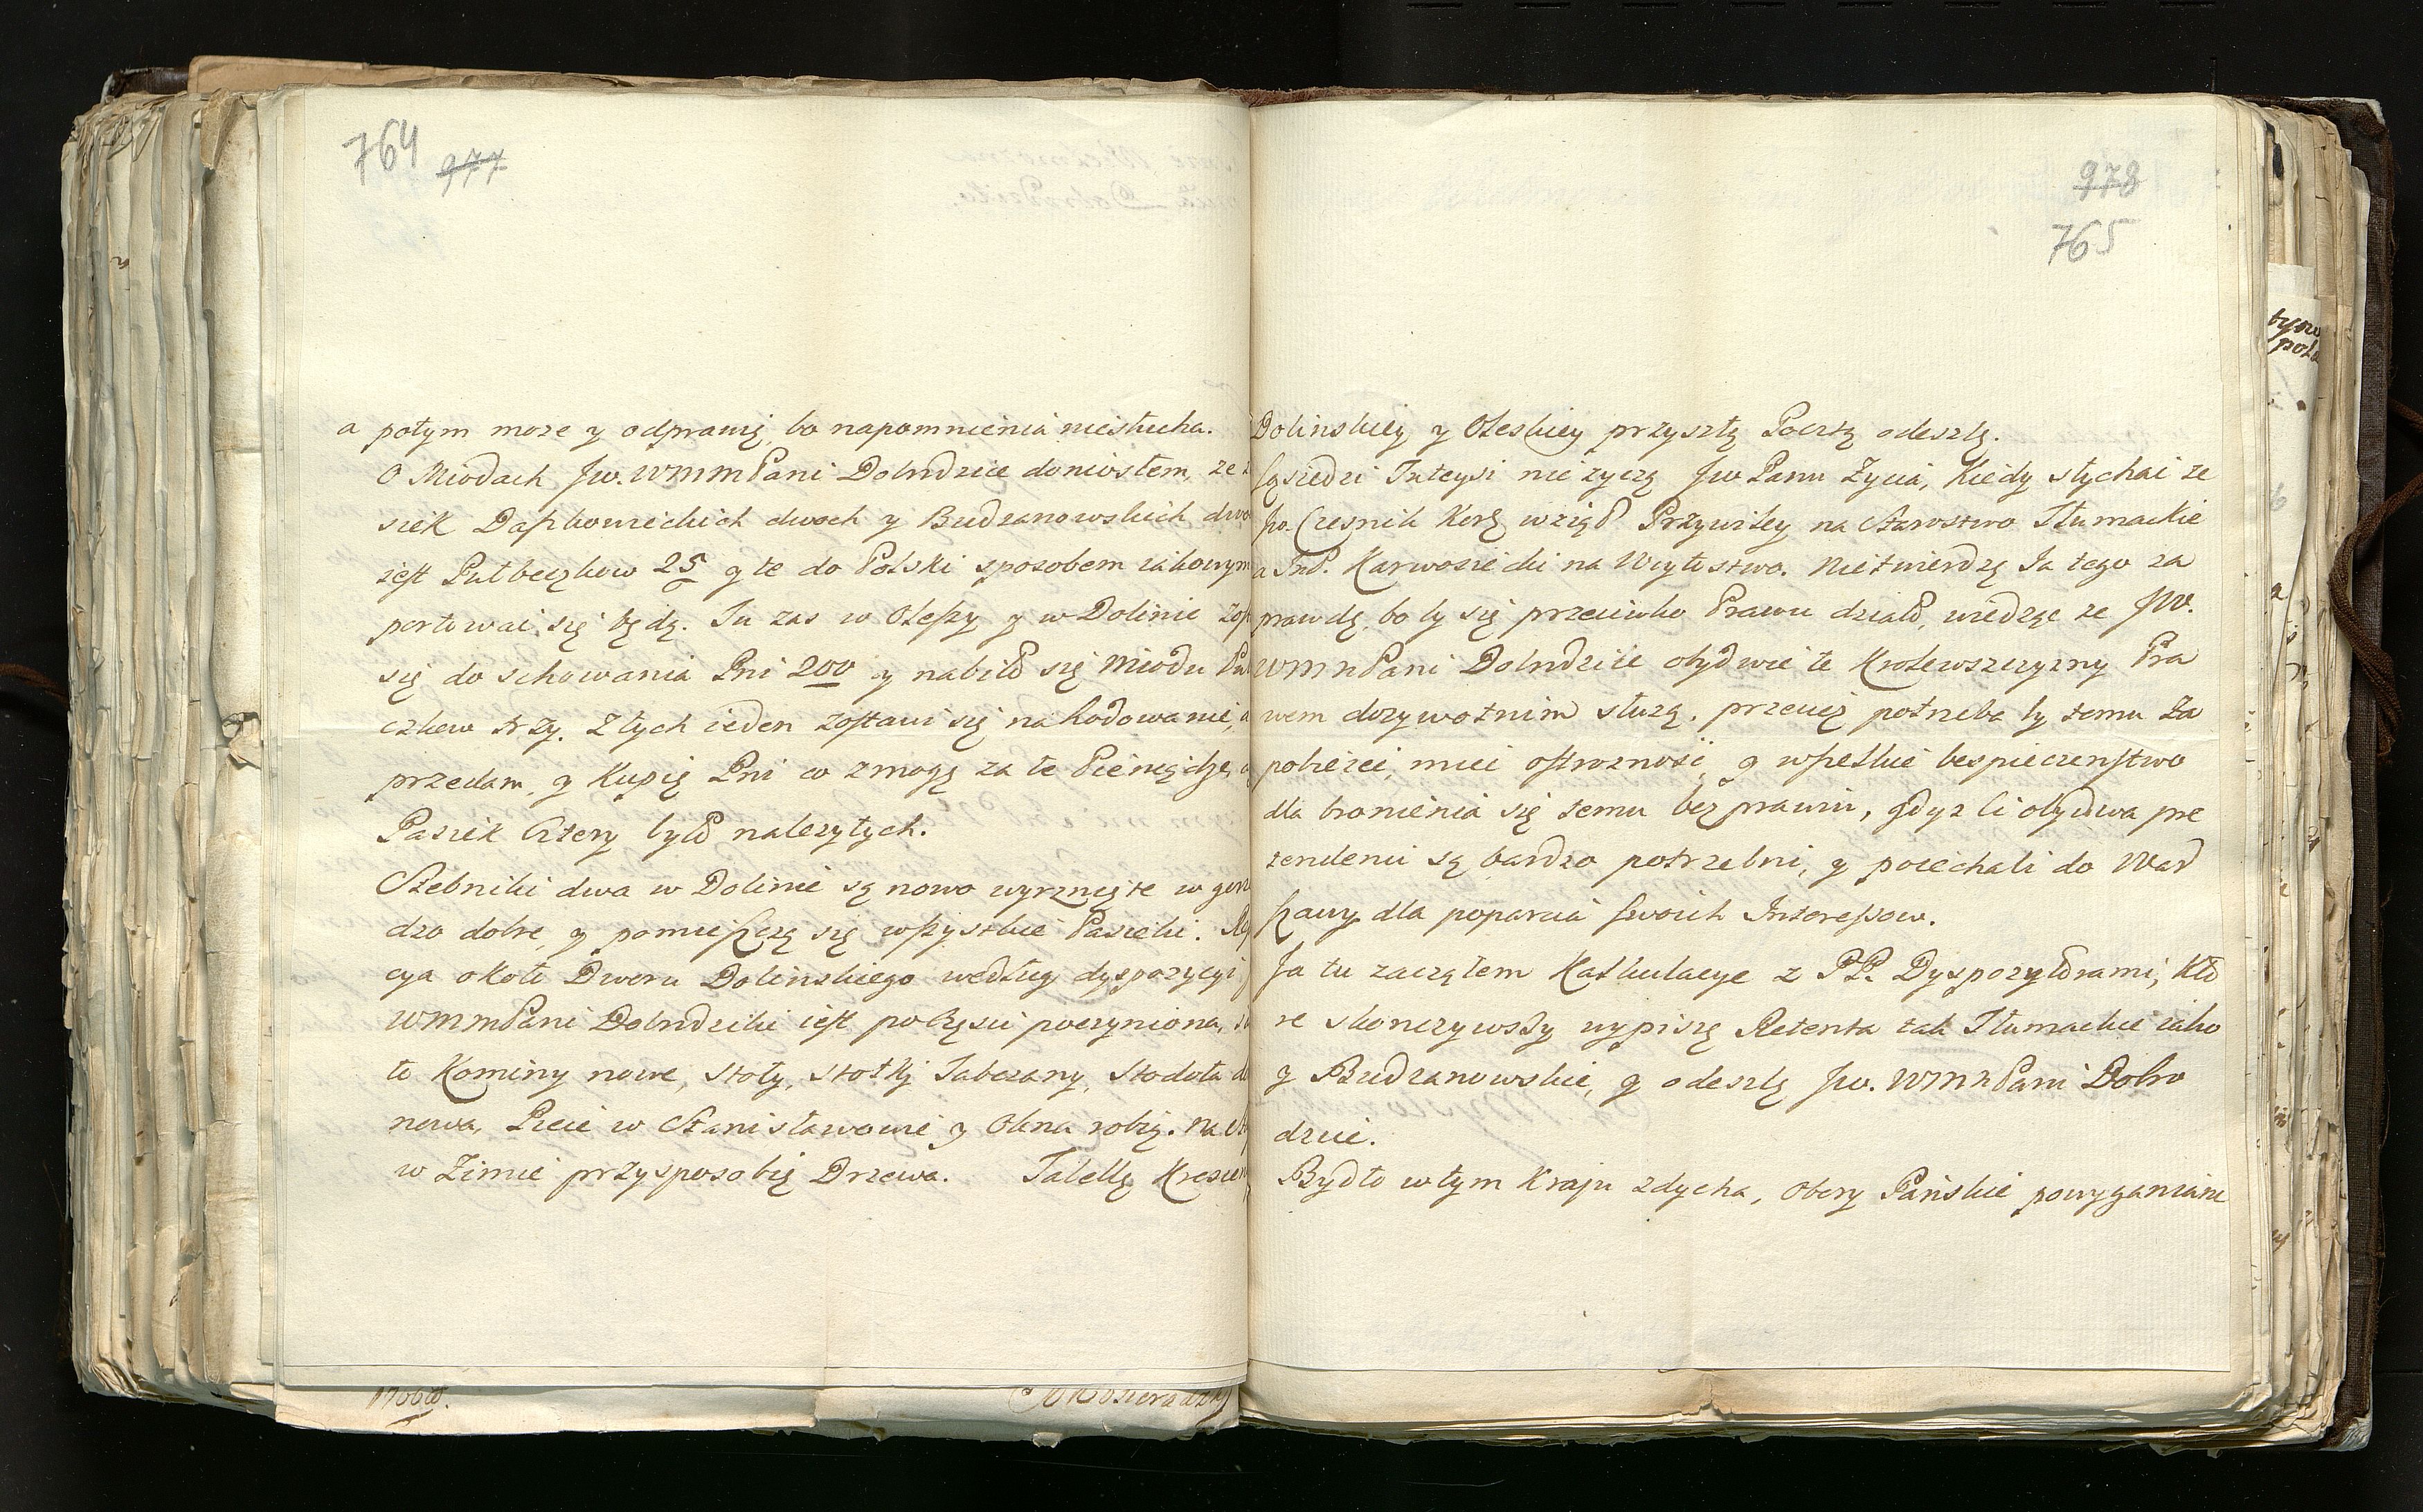 764 977
a potym może y odprawię, bo napomnienia niesłucha.
O Miodach Jw. WMMPani Dobrdzice doniosłem, ze z
siek Daszkowieckich dwoch y Budzanowskich dwo
iest Pułbeczkow 25 y te do Polski sposobem iakowym
portować się będą. Tu zas w Oleszy y w Dolinie zos
się do schowania Pni 200 y nabiło się Miodu Puł
czkow trzy. Z tych ieden zostawi się na hodowanie, a
przedam, y Kupię Pni co zmogę za te Pieniądze, a
Pasiek cztery było należytych.
Stebniki dwa w Dolinie są nowo wyrznięte w gorz
dzo dobre, y pomieszczą się wszystkie Pasieki. Re
cya około Dworu Dolinskiego według dyspozycyi J
WMMPani Dobrdziki iest po częsci poczyniona, ia
to Kominy nowe, stoły, stołki Taborany, Stodoła do
nowa, Piece w Stanisławowie y Okna robią. Na
w Zimie przysposobię Drzewa. Tabellę Krescen
1766
978
765
Dolinskiey y Oleskiey przyszłą Pocztą odeszlę.
Sąsiedzi Tuteysi nie życzą Jw Panu Zycia, Kiedy słychać ze
Jw. Czesnik Kor. wziął Przywiley na Starostwo Tłumackie
a ImP. Karwosiecki na Woytostwo. Nietwierdzę Ia tego za
prawdę, bo by się przeciwko Prawu działo, wiedząc ze JW.
WMMPani Dobrdzice obydwie te Krolewszczyzny Pra
wem dozywotnim służą, przecię potrzeba by temu Za
pobieżeć, mieć ostrożność, y wszelkie bespieczenstwo
dla bronienia się temu bezprawiu, gdyż ci obydwa pre
tendenci są bardzo potrzebni, y poiechali do War
szawy dla poparcia swoich Interessow.
Ja tu zacząłem Kalkulacye z PP. Dyspozytorami, kto
re skonczywszy wypiszę Retenta tak Tłumackie iako
y Budzanowskie, y odeszlę Jw. WMMPani Dobro
dzice.
Bydło w tym Kraiu zdycha, Obory Pańskie powyganiane